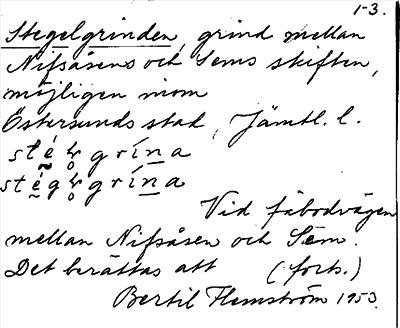 1-3.
Stegelgrinden, grind mellan
Nifsåsens och Sems skiften,
möjligen inom
Östersunds stad, Jämtl. l.
grína
grína
Vid fäbodvägen
mellan Nifsåsen och Sem.
Det berättas att (forts.)
Bertil Flemström 1953.